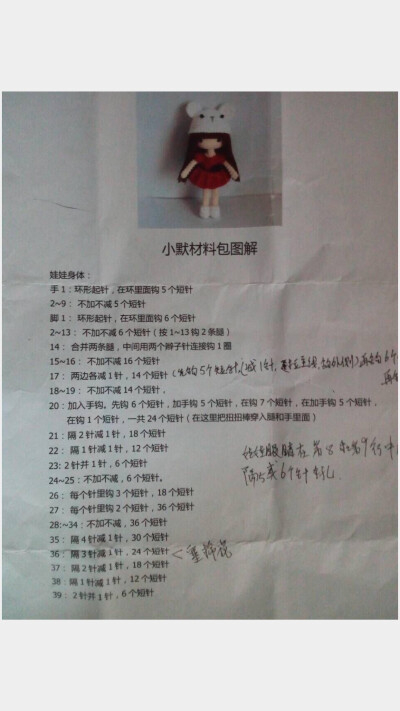 小默材料包图解
娃娃身体：
手 1：环形起针，在环里面钩 5 个短针
2~9： 不加不减 5 个短针
脚 1： 环形起针，在环里面钩 6 个短针
2~13： 不加不减 6 个短针（按 1~13 钩 2 条腿）
14： 合并两条腿，中间用两个辫子针连接钩 1 圈
15~16： 不加不减 16 个短针
17： 两边各减 1 针，14 个短针（先钩5个短针，减1针，
18~19： 不加不减 14 个短针，
20：加入手钩。先钩 6 个短针，加手钩 5 个短针，在钩 7 个短针，在加手钩 5 个短针，
在钩 1 个短针，一共 24 个短针（在这里把扭扭棒穿入腿和手里面）
21： 隔 2 针减 1 针，18 个短针
22： 隔 1 针减 1 针，12 个短针
23: 2 针并 1 针，6 个短针
24~25： 不加不减，6 个短针。
26： 每个针里钩 3 个短针，18 个短针
27： 每个针里钩 2 个短针，36 个短针
28:~34： 不加不减，36 个短针
35： 隔 4 针减 1 针，30 个短针
36： 隔 3 针减 1 针，24 个短针
37： 隔 2 针减 1 针，18 个短针
38： 隔 1 针减 1 针，12 个短针
39： 2 针并 1 针，6 个短针